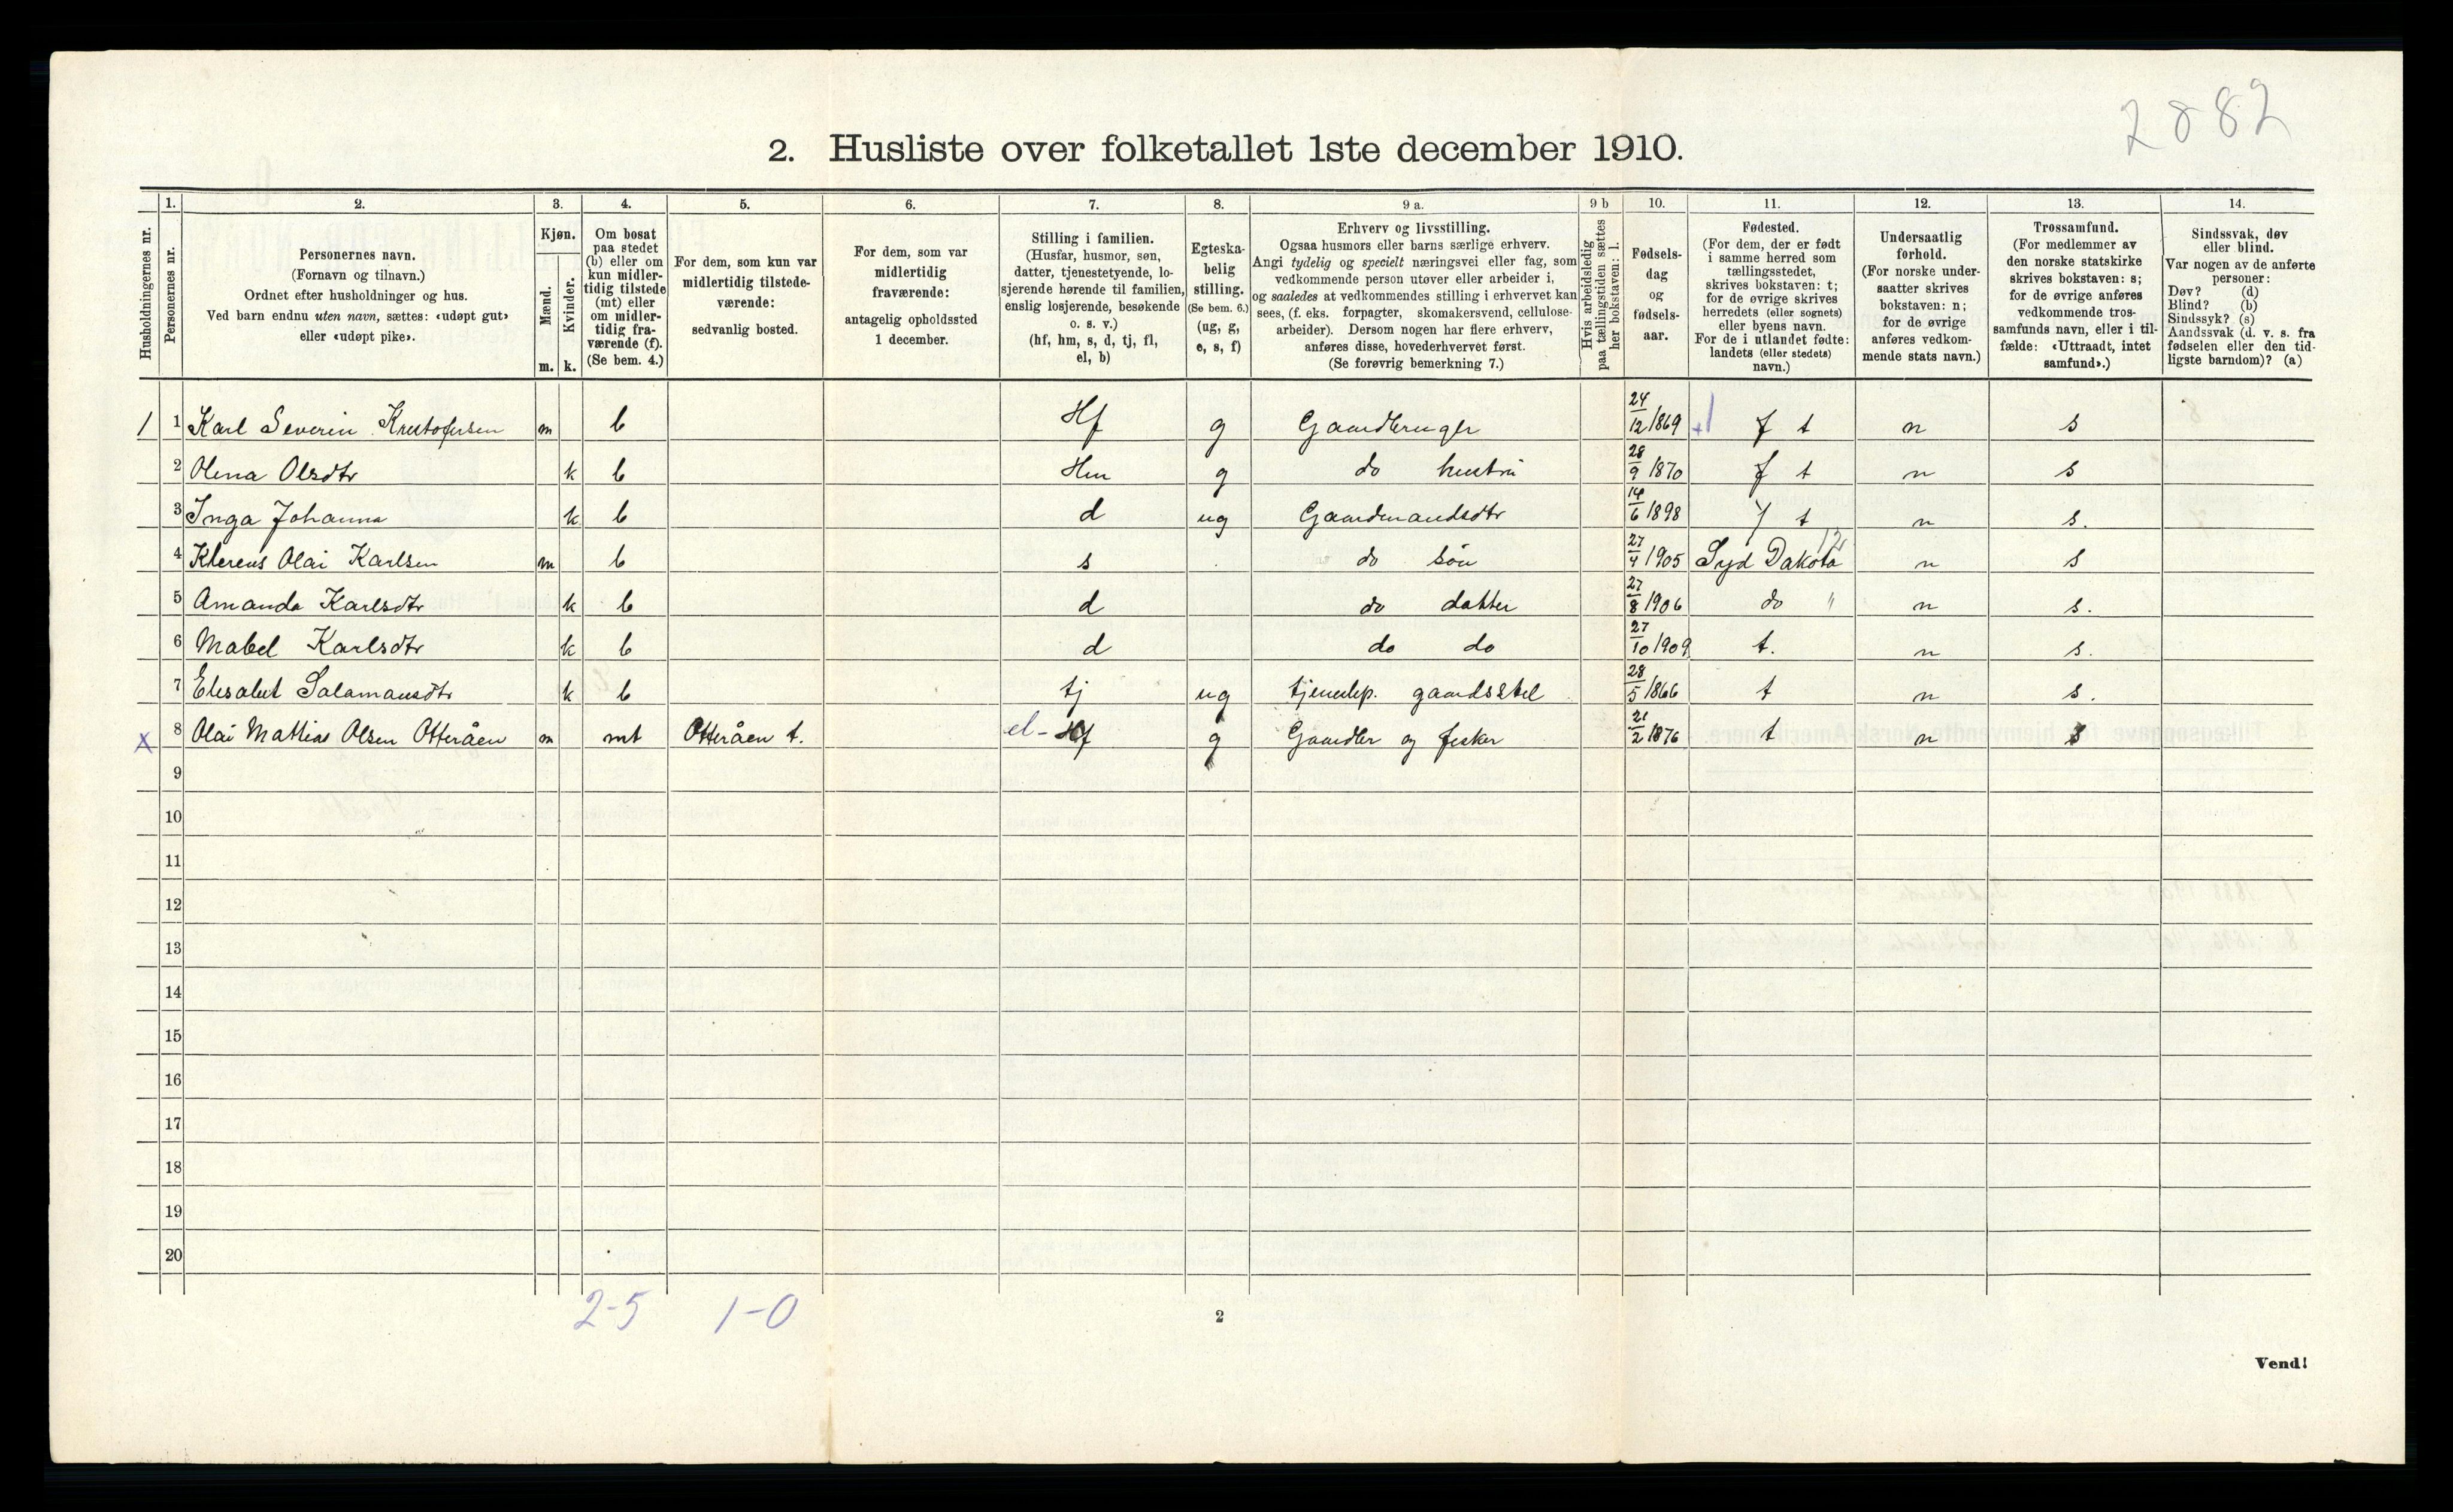 2882
2. Husliste over folketallet 1ste december 1910.
1. 2. 3. 4. 5. 6. 7. 8. 9 a. 9 b 10. 11. 12. 13. 14.
Husholdningernes nr.
Personernes nr.
Personernes navn.
(Fornavn og tilnavn.)
Ordnet efter husholdninger og hus.
Ved barn endnu uten navn, sættes: «udøpt gut»
eller «udøpt pike».
Kjøn.
Mænd.
Kvinder.
m. k.
Om bosat
paa stedet
(b) eller om
kun midler-
tidig tilstede
(mt) eller
om midler-
tidig fra-
værende (f).
(Se bem. 4.)
For dem, som kun var
midlertidig tilstede-
værende:
sedvanlig bosted.
For dem, som var
midlertidig
fraværende:
antagelig opholdssted
1 december.
Stilling i familien.
(Husfar, husmor, søn,
datter, tjenestetyende, lo-
sjerende hørende til familien,
enslig losjerende, besøkende
o. s. v.)
(hf, hm, s, d, tj, fl,
el, b)
Egteska-
belig
stilling.
(Se bem. 6.)
(ug, g,
e, s, f)
Erhverv og livsstilling.
Ogsaa husmors eller barns særlige erhverv.
Angi tydelig og specielt næringsvei eller fag, som
vedkommende person utøver eller arbeider i,
og saaledes at vedkommendes stilling i erhvervet kan
sees, (f. eks. forpagter, skomakersvend, cellulose-
arbeider). Dersom nogen har flere erhverv,
anføres disse, hovederhvervet først.
(Se forøvrig bemerkning 7.)
Hvis arbeidsledig
paa tællingstiden sættes
her bokstaven: l.
Fødsels-
dag
og
fødsels-
aar.
Fødested.
(For dem, der er født
i samme herred som
tællingsstedet,
skrives bokstaven: t;
for de øvrige skrives
herredets (eller sognets)
eller byens navn.
For de i utlandet fødte:
landets (eller stedets)
navn.)
Undersaatlig
forhold.
(For norske under-
saatter skrives
bokstaven: n;
for de øvrige
anføres vedkom-
mende stats navn.)
Trossamfund.
(For medlemmer av
den norske statskirke
skrives bokstaven: s;
for de øvrige anføres
vedkommende tros-
samfunds navn, eller i til-
fælde: «Uttraadt, intet
samfund».)
Sindssvak, døv
eller blind.
Var nogen av de anførte
personer:
Døv? (d)
Blind? (b)
Sindssyk? (s)
Aandssvak (d. v. s. fra
fødselen eller den tid-
ligste barndom)? (a)
1 1 Karl Severin Kristofersen m b Hf g Gaardbruger 24/12 1869 f t n s
2 Olena Olsdtr k b Hm g do hustru 28/9 1870 f t n s
3 Inga Johanna k b d ug Gaardmandsdtr 14/6 1898 t n s.
4 Olai Karlsen m b s do søn 27/4 1905 Syd Dakota 12 n s
5 Amanda Karlsdtr k b d do datter 27/8 1906 do " n s.
6 Mabel Karlsdtr k b d do do 27/10 1909 t. n s.
7 Elisabet Salamansdtr k b tj ug gaardsstel 28/5 1866 t n s.
X 8 Olai Mathias Olsen Otteråen m mt Otteråen t. el- Hf g og fisker 21/2 1876 t n s
9
10
11
12
13
14
15
16
17
18
19
20
2-5 1-0
2
Vend!